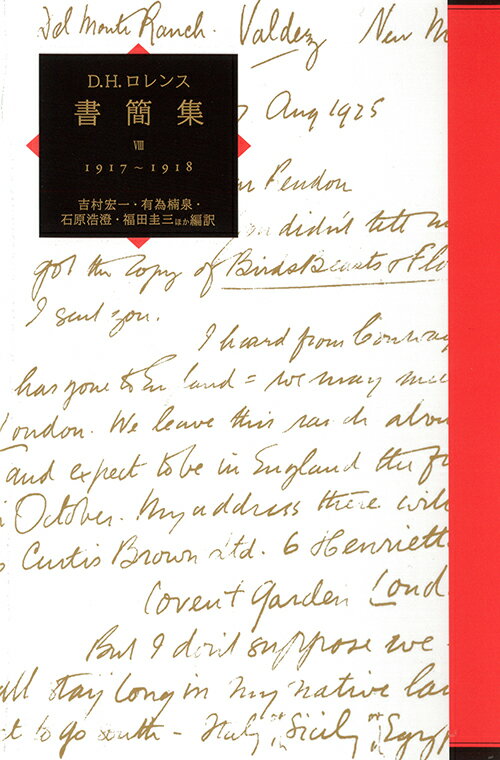 Del Monte Ranch. Valdez New M
D.H.ロレンス
書簡集
Ⅷ
1917~1918
吉村宏一・有為楠泉・
石原浩澄・福田圭三ほか編訳
7 Aug 1925
Pendon
didn't tell m
got the copy of Birds Beasts & Flo
I sent you.
I heard from Conway
has gone to England = we may mee
London. We leave this ranch abou
and expect to be in England the fi
October. My address there will
Curtis Brown Ltd. 6 Henriett
Covent Garden Lond
But I don't suppose we
all stay long in my native lan
t to go south - Italy or Sicily or Egyp